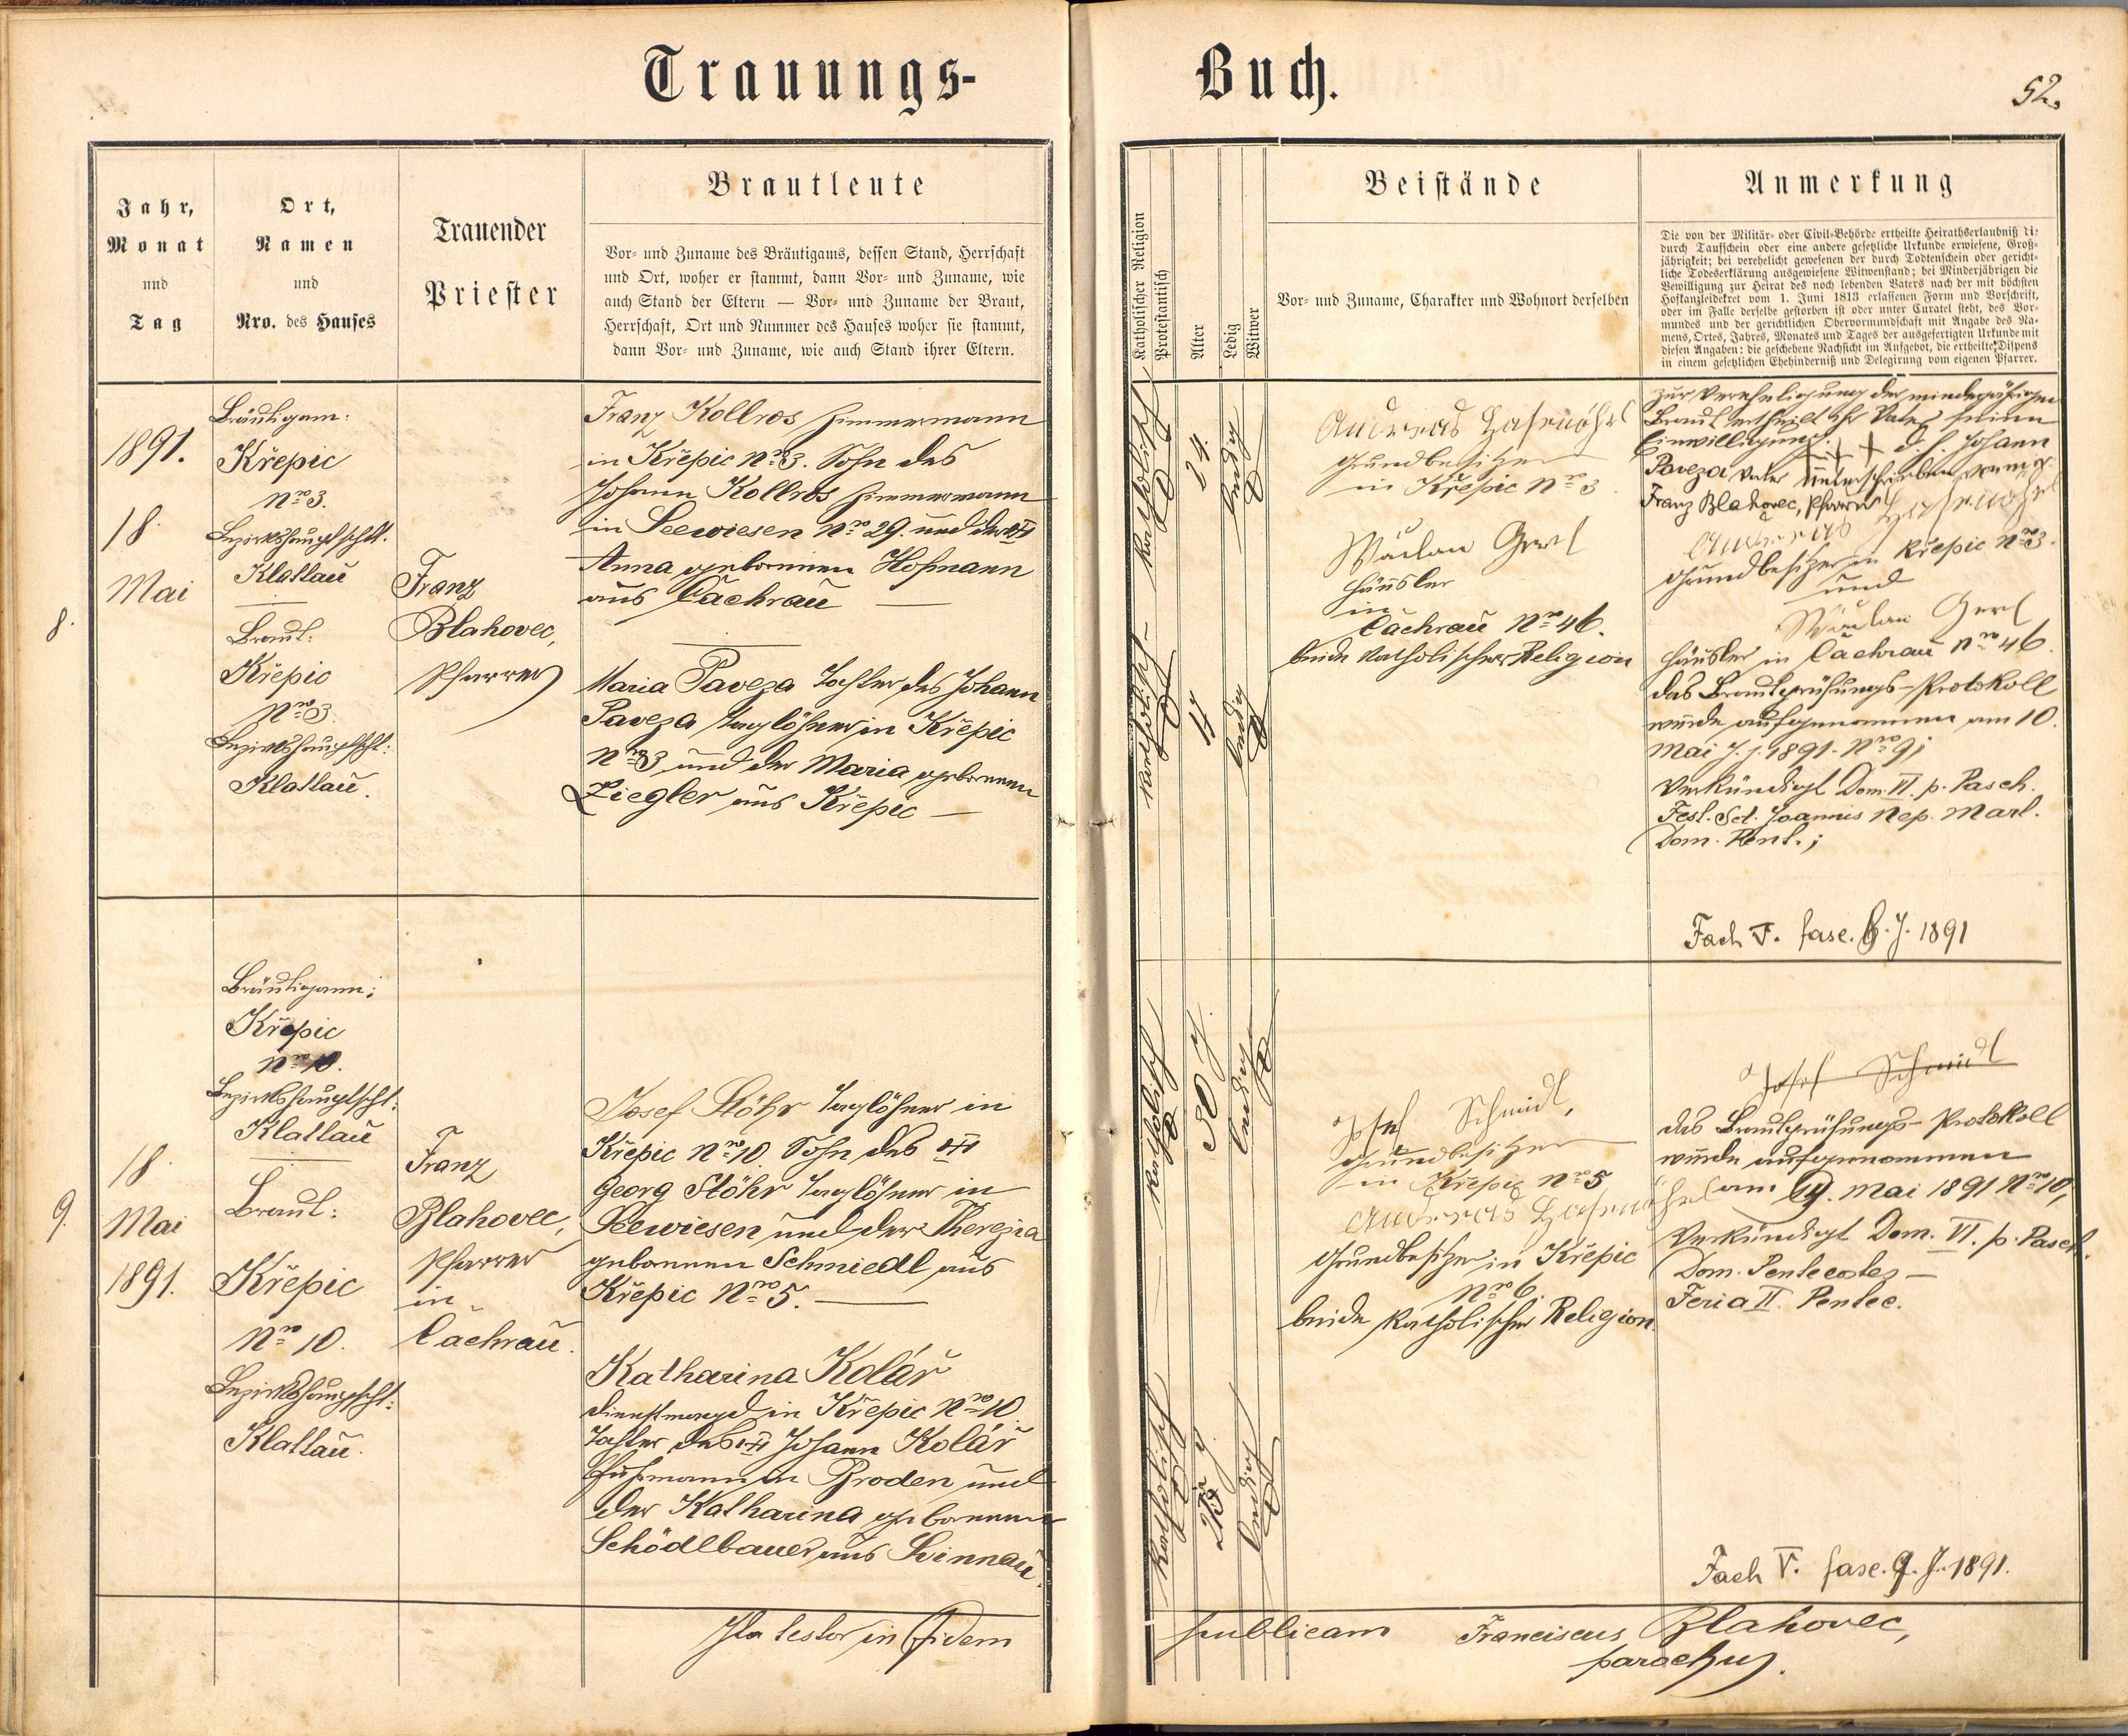 Trauungs-
Buch.
52.
Jahr,
Monat
und
Tag
Ort,
Namen
und
Nro. des Hauses
Trauender
Priester
Brautleute
Vor- und Zuname des Bräutigams, dessen Stand, Herrschaft
und Ort, woher er stammt, dann Vor- und Zuname, wie
auch Stand der Eltern — Vor- und Zuname der Braut,
Herrschaft, Ort und Nummer des Hauses woher sie stammt,
dann Vor- und Zuname, wie auch Stand ihrer Eltern.
Katholischer Religion
Protestantisch
Alter
Ledig
Witwer
Beistände
Vor- und Zuname, Charakter und Wohnort derselben
Anmerkung
Die von der Militär- oder Civil-Behörde ertheilte Heirathserlaubniß die
durch Taufschein oder eine andere gesetzliche Urkunde erwiesene, Groß-
jährigkeit; bei verehelicht gewesenen der durch Todtenschein oder gericht-
liche Todeserklärung ausgewiesene Witwenstand; bei Minderjährigen die
Bewilligung zur Heirat des noch lebenden Vaters nach der mit höchsten
Hofkanzleidekret vom 1. Juni 1813 erlassenen Form und Vorschrift,
oder im Falle derselbe gestorben ist oder unter Curatel steht, des Vor-
mundes und der gerichtlichen Obervormundschaft mit Angabe des Na-
mens, Ortes, Jahres, Monates und Tages der ausgefertigten Urkunde mit
diesen Angaben: die geschehene Nachsicht im Aufgebot, die ertheilte Dispens
in einem gesetzlichen Ehehinderniß und Delegirung vom eigenen Pfarrer.
8.
1891.
18.
Mai
Bräutigam:
Křepic
Nro 3.
Bezirkshauptschft.
Klattau
Braut:
Křepic
Nro 3.
Bezirkshauptscht:
Klattau.
Franz
Blahovec,
Pfarrer
Franz Kollros Zimmermann
in Křepic Nro 3. Sohn des
Johann Kollros Zimmermann
in Seewiesen Nro 29. und der
Anna geborenen Hofmann
aus Čachrau —
Maria Paveza Tochter des Johann
Paveza Taglöhner in Křepic
Nro 3 und der Maria geborenen
Ziegler aus Křepic —
katholisch
24.
ledig
katholisch
17
ledig
Andreas Hasenöhrl
Grundbesitzer
in Křepic Nro 3
Václav Gerl
Häusler
in
Čachrau Nro 46.
beide katholischer Religion
Zur Verehelichung der minderjährigen
Braut ertheilt ihr Vater seine
Einwilligung. +++ d. h. Johann
Paveza Vater unterschrieben von mir
Franz Blahovec, Pfarrer
Andreas Hasenöhrl
Grundbesitzer in Křepic Nro 3.
und
Václav Gerl
Häusler in Čachrau Nro 46.
das Brautprüfungs-Protokoll
wurde aufgenommen am 10.
Mai J. J. 1891. Nro 9;
Verkündigt Dom. VI. p. Pasch.
Fest. Sct. Joannis Nep. Mart.
Dom. Pent.;
Fach V. fasc. 8. J. 1891
9.
18.
Mai
1891.
Bräutigam;
Křepic
Nro 10.
Bezirkshauptscht:
Klattau
Braut:
Křepic
Nro 10.
Bezirkshauptscht:
Klattau.
Franz
Blahovec,
Pfarrer
in
Čachrau.
Josef Stöhr Taglöhner in
Křepic Nro 10. Sohn des
Georg Stöhr Taglöhner in
Seewiesen und der Therezia
geborenen Schmiedl aus
Křepic Nro 5. —
Katharina Kolář
Dienstmagd in Křepic Nro 10.
Tochter des Johann Kolář
Fuhrmann in Broden und
der Katharina geborenen
Schödlbauer aus Svinnau.
katholisch
30 J.
ledig
katholisch
J.
ledig
Josef Schmidl,
Grundbesitzer
in Křepic Nro 5
Andreas Hasenöhrl
Grundbesitzer in Křepic
Nro 6.
beide katholischer Religion.
Josef Schmidl
das Brautprüfungs-Protokoll
wurde aufgenommen
am 14. Mai 1891 Nro 10,
Verkündigt Dom. VI. p. Pasch.
Dom. Pentecostes —
Feria II. Pentec.
Fach V. fasc. 9. J. 1891.
Ita testor in fidem
publicam Franciscus Blahovec,
parochus.